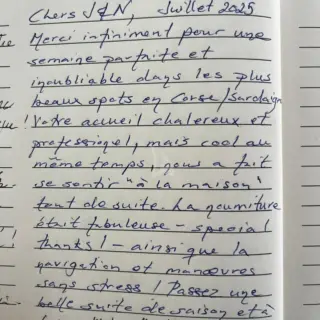 Chers J&N, Juillet 2025
Merci infiniment pour une
semaine parfaite et
inoubliable dans les plus
beaux spots en Corse/Sardaign
Votre accueil chalereux et
professionel, mais cool au
même temps, nous a fait
se sentir "à la maison"
tout de suite. La nourriture
était fabuleuse - special
thanks! - ainsi que la
navigation et manœuvres
sans stress! Passez une
belle suite de saison et à